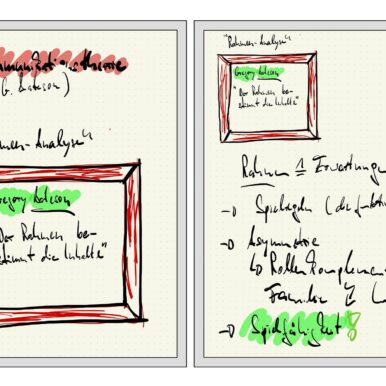 (G. Bateson)
Gregory Bateson
"Der Rahmen be-
stimmt die Inhalte"
"Rahmen-Analyse"
Gregory Bateson
"Der Rahmen be-
stimmt die Inhalte"
Rahmen ≙ Erwartungen
→ Spielregeln
→ Asymmetrie
↳ Rollen
Familie
→ Spielfähigkeit!